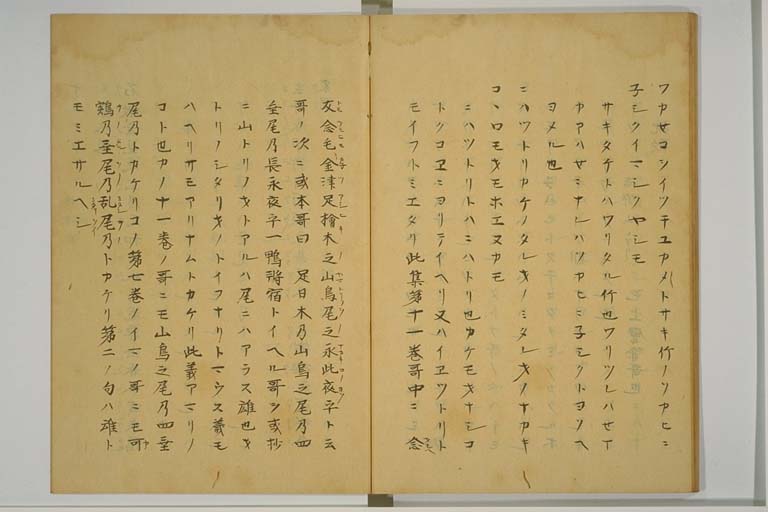 ワカせコシイツチユカメトサキ竹ノソカヒニ
子シクイマシクヤシモ
サキタケトハワリタル竹也ワリツレハせナ
カアハせニナレハソカヒニ子シクトヨソヘ
ヨメル也
ニハツトリカケノタレ尾ノミタレ尾ノナカキ
コヽロモオモホエヌカモ
ニハツトリトハニハトリ也カケモオナシコ
トクコヱニヨリテイヘリ又ハイヱツトリト
モイフトミエタリ此集第十一巻哥中ニモ念
友念毛金津足檜木之山鳥尾之永此夜乎ト云
哥ノ次ニ或本哥曰足日木乃山鳥之尾乃四
垂尾乃長永夜乎一鴨将宿トイヘル哥ヲ或抄
ニ山トリノオトアルハ尾ニハアラス雄也オ
トリノシタリオノトイフナリトマウス義モ
ハヘリサモアリナムトカケリ此義アマリノ
コト也カノ十一巻ノ哥ニモ山鳥之尾乃四垂
尾乃トカケリコノ第七巻ノイマノ哥ニモ可
鶏乃垂尾乃乱尾乃トカケリ第二ノ句ハ雄ト
モミエサルヘシ